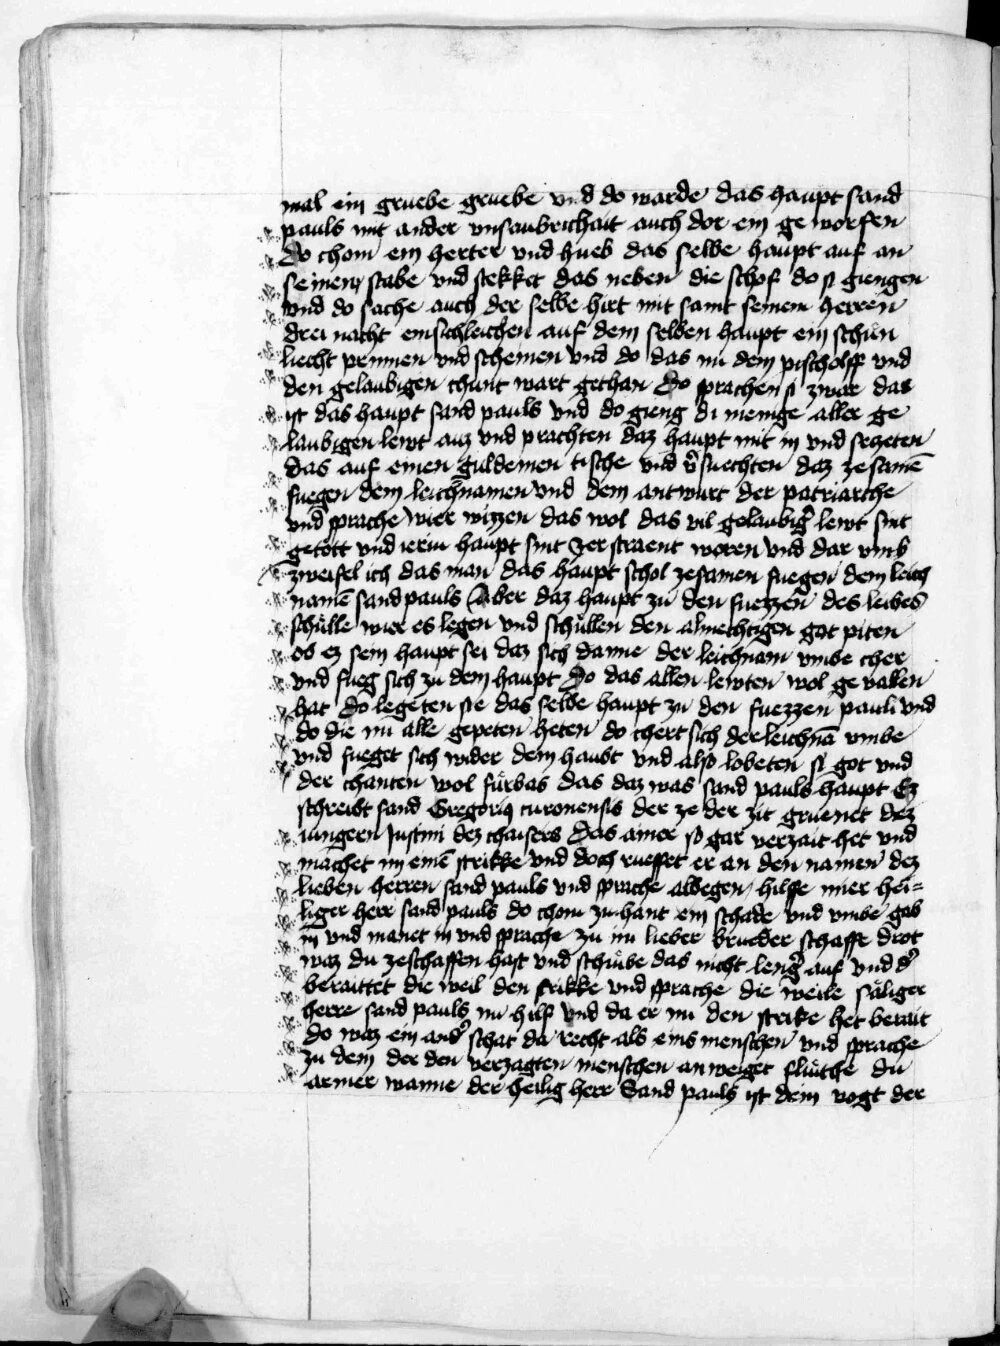 mal ein gruebe gruebe vnd do warde das haupt sand
pauls mit ander vnsaubrichait auch dor ein geworfen
Do chom ein herter vnd hueb das selbe haupt auf an
seinem stabe vnd stekket das neben die schof do si giengen
vnd do sache auch der selbe hirt mit samt seinem herren
drei nacht einsichleichen auf dem selben haupt ein schün
liecht prinnen vnd scheinen vnd do das nu dem pischolff vnd
den gelaubigen chunt wart gethan Do sprachen si zwar das
ist das haupt sand pauls vnd do gieng di menige aller ge
laubigen lewt auz vnd prachten daz haupt mit in vnd seczeten
das auf einen guldeinen tische vnd v̉suechten daz zesamē
fuegen dem leichnamen vnd dem antwurt der patriarche
vnd sprache wier wizzen das wol das vil gelaubig̉ lewt sint
getött vnd ieriu haupt sint zerstraent woren vnd dar vmb
zweifel ich das man das haupt schol zesamen fuegen dem leich
namē sand pauls Aber daz haupt zu den fuezzen des leibes
schülle wier es legen vnd schüllen den almechtigen got piten
ob ez sein haupt sei daz sich danne der leichnam vmbe cher
vnd fueg sich zu dem haupt Do das allen lewten wol gevallen
hat Do legeten sie das selbe haupt zu den fuezzen pauli vnd
do die nu alle gepeten heten do chert sich der leichnā vmbe
vnd fueget sich wider dem haubt vnd also lobeten si got vnd
der chanten wol fürbas das daz was sand pauls haupt Ez
schreibt sand Gregorius turonensis der ze der zit gruenet dez
iungern Justini dez chaisers Das ainer so gar verzait het vnd
machet im einē strikke vnd doch rueffet er an den namen dez
lieben herren sand pauls vnd sprache albegen hilffe mier hei=
liger herr sand pauls do chom zuhant ein schade vnd vmbe gab
in vnd manet in vnd sprache zu im lieber brueder schaffe drot
waz du zeschaffen hast vnd schiube das nicht leng̉ auf vnd d̉
beraittet die weil den strikke vnd sprache die weile säliger
herre sand pauls nu hilf vnd da er im den strike het berait
do waz ein and̉ schat da recht als eins menschen vnd sprache
zu dem der den verzagten menschen anweiget fliuche du
armer wanne der heilig herr Sand pauls ist dein vogt der